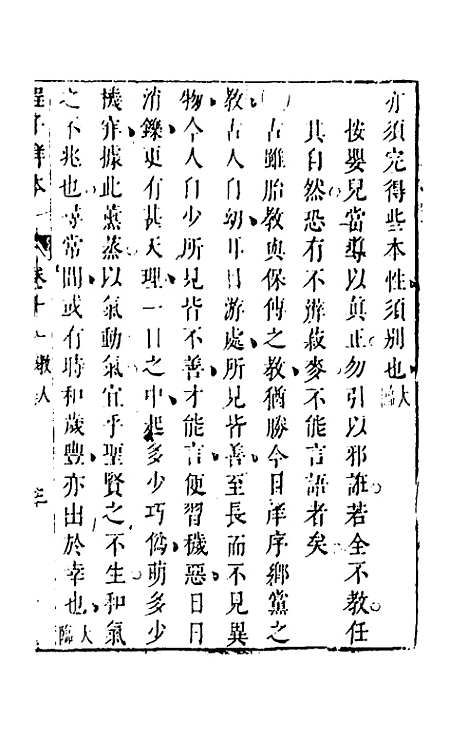 亦須完得些本性須別也大臨
按嬰兒當導以眞正勿引以邪誑若全不教任
其自然恐有不辨菽麥不能言語者矣
古雖胎教與保傅之教猶勝今日庠序鄉黨之
教古人自幼耳目游處所見皆善至長而不見異
物今人自少所見皆不善才能言便習穢惡日日
消鑠更有甚天理一日之中起多少巧僞萌多少
機穽據此薰蒸以氣動氣宜乎聖賢之不生和氣
之不兆也尋常間或有時和歲豐亦出於幸也大臨
程子詳本 卷十一 教人